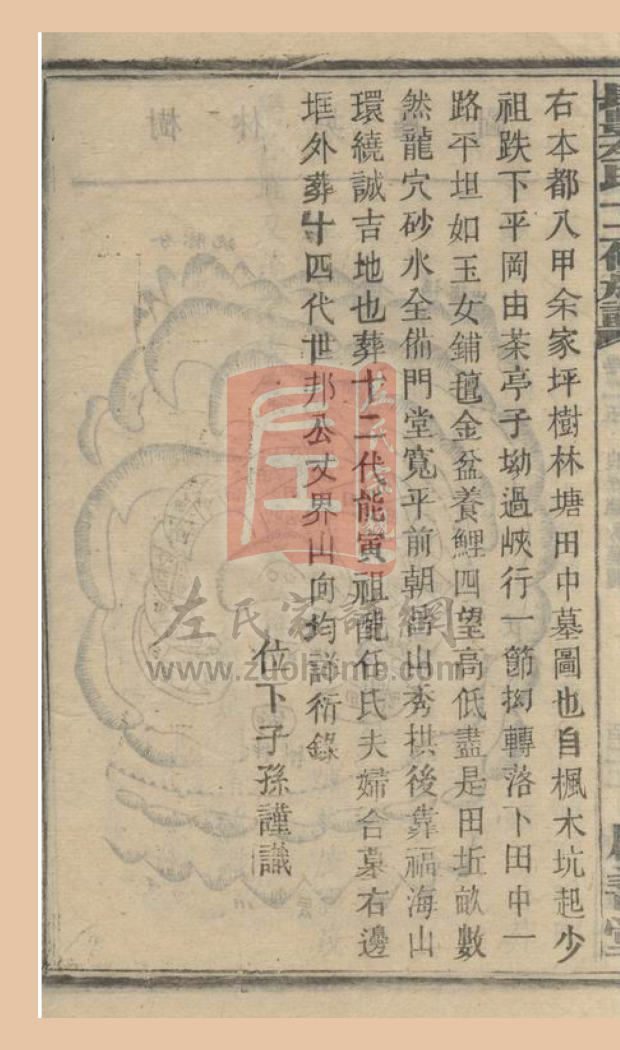 右本都八甲余家坪樹林塘田中墓圖也自楓木坑起少
祖跌下平岡由茶亭子坳過峽行一節拗轉落下田中一
路平坦如玉女鋪氊金盆養鯉四望高低盡是田坵畝數
然龍穴砂水全備門堂寬平前朝山秀拱後靠福海山
環繞誠吉地也葬十二代能寅祖配任氏夫婦合墓右邊
堆外葬十四代世邦公丈界山向均詳衍錄
位下子孫謹識
左氏家譜網
www.zuohome.com